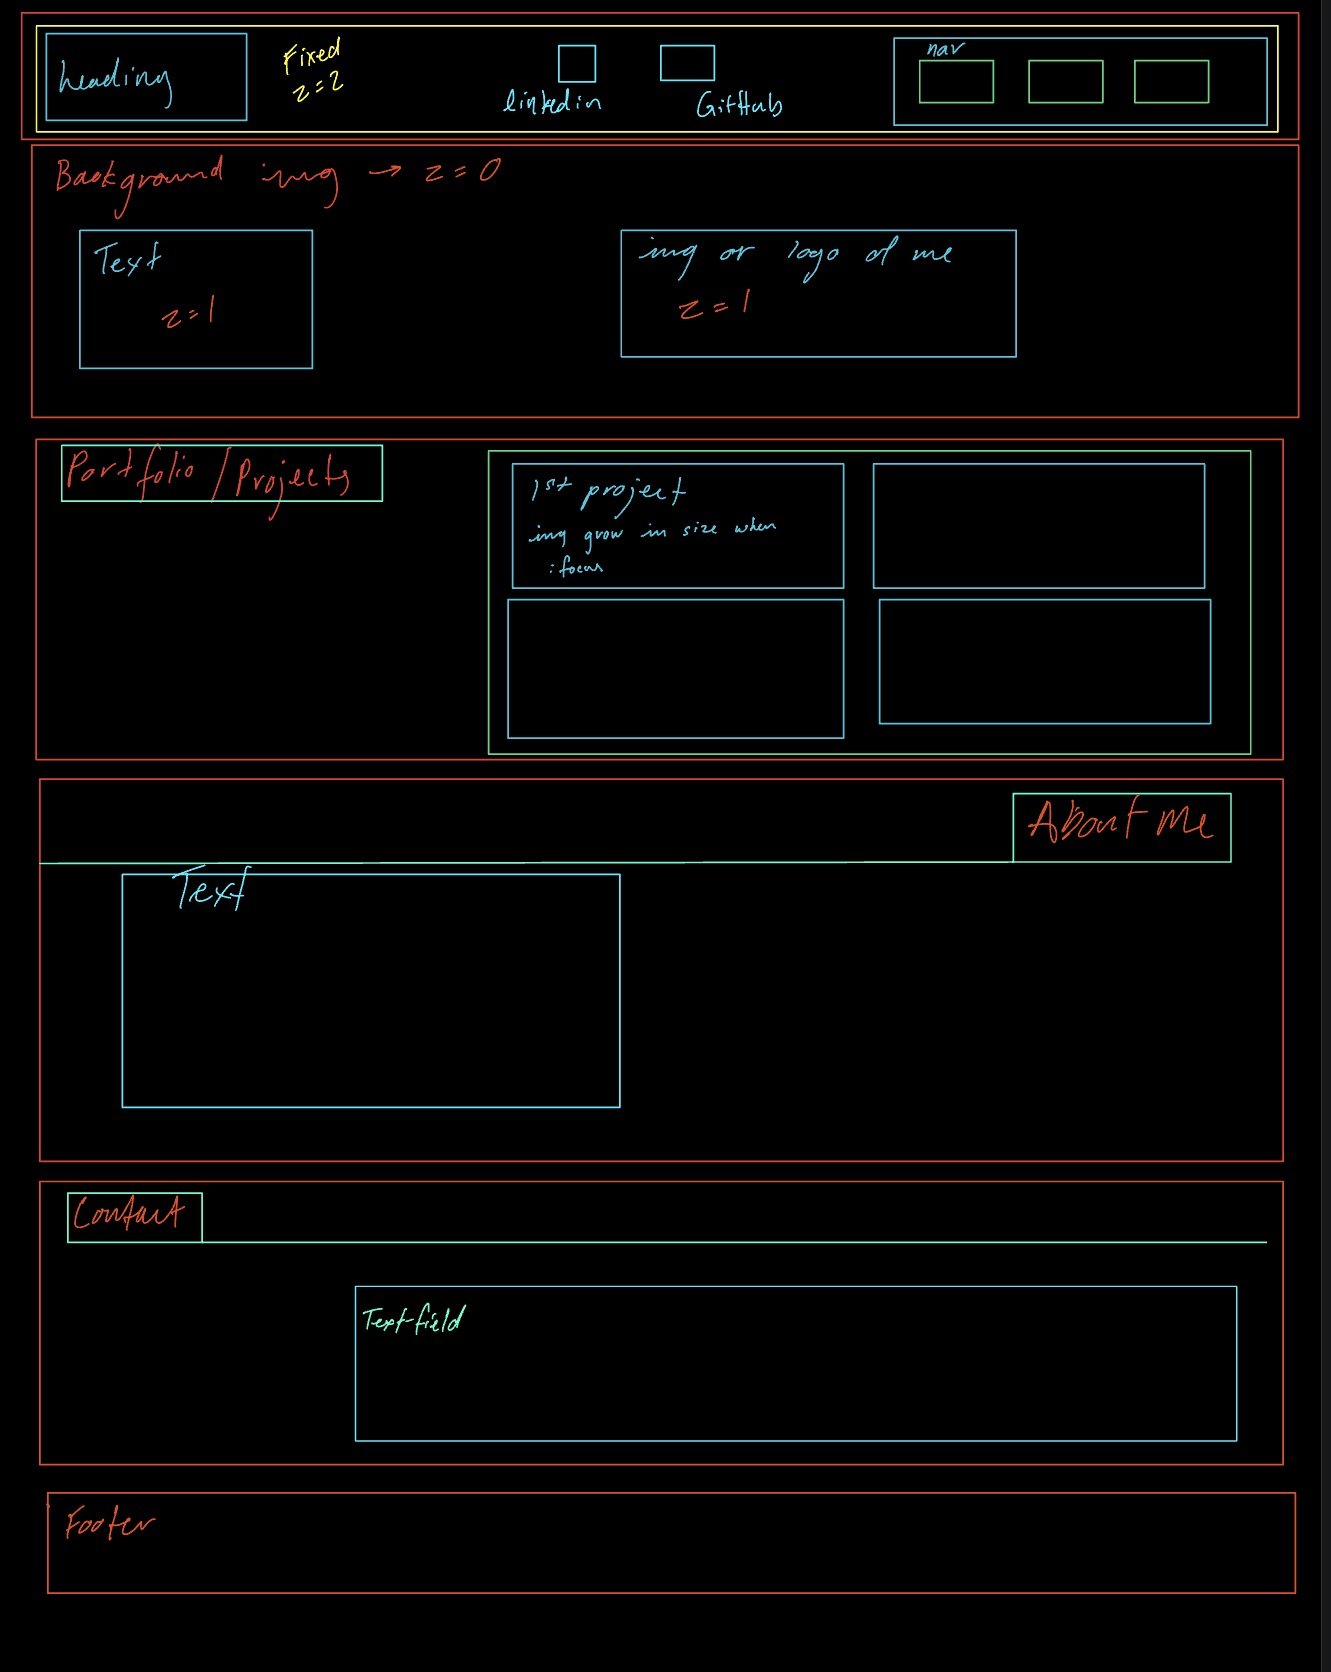 heading
Fixed
z=2
linkedin
GitHub
nav
Background img → z=0
Text
z=1
img or logo of me
z=1
Portfolio / Projects
1st project
img grow in size when
:focus
About Me
Text
Contact
Text-field
Footer